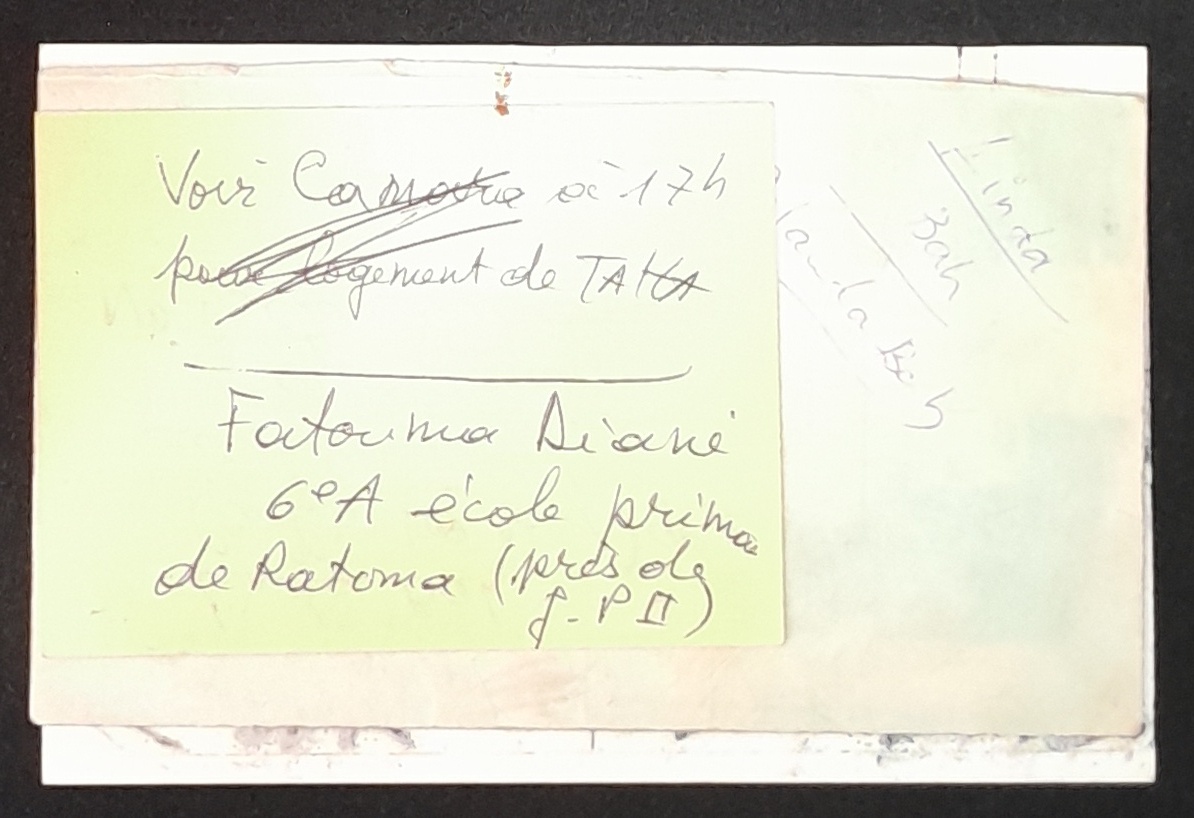 Voir Camara à 17h
pour logement de TAHA
Fatouma Diané
6e A école prima
de Ratoma (près de
J-P II)
Linda
Bah